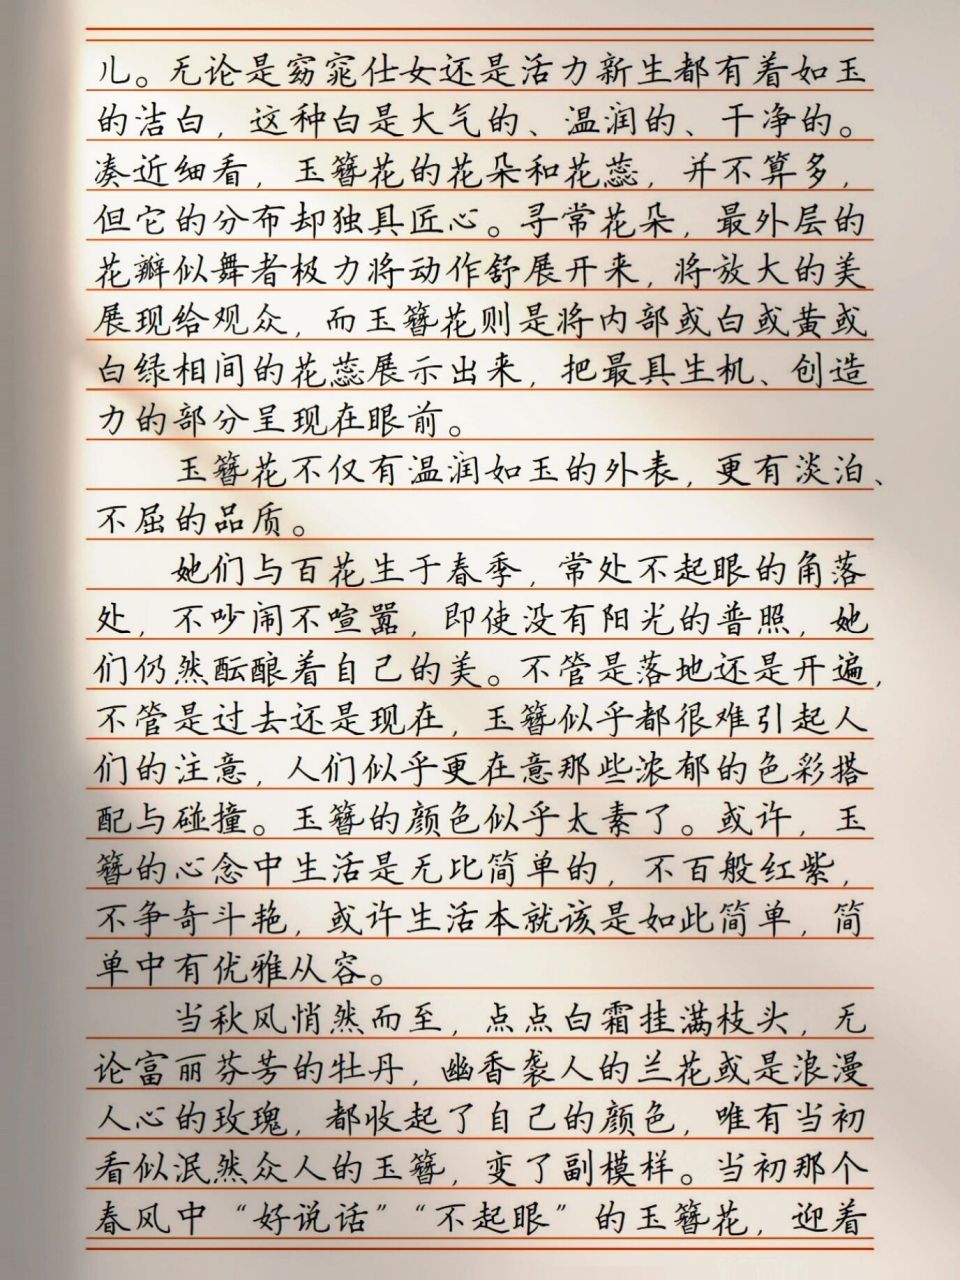 儿。无论是窈窕仕女还是活力新生都有着如玉
的洁白，这种白是大气的、温润的、干净的。
凑近细看，玉簪花的花朵和花蕊，并不算多，
但它的分布却独具匠心。寻常花朵，最外层的
花瓣似舞者极力将动作舒展开来，将放大的美
展现给观众，而玉簪花则是将内部或白或黄或
白绿相间的花蕊展示出来，把最具生机、创造
力的部分呈现在眼前。
玉簪花不仅有温润如玉的外表，更有淡泊、
不屈的品质。
她们与百花生于春季，常处不起眼的角落
处，不吵闹不喧嚣，即使没有阳光的普照，她
们仍然酝酿着自己的美。不管是落地还是开遍，
不管是过去还是现在，玉簪似乎都很难引起人
们的注意，人们似乎更在意那些浓郁的色彩搭
配与碰撞。玉簪的颜色似乎太素了。或许，玉
簪的心念中生活是无比简单的，不百般红紫，
不争奇斗艳，或许生活本就该是如此简单，简
单中有优雅从容。
当秋风悄然而至，点点白霜挂满枝头，无
论富丽芬芳的牡丹，幽香袭人的兰花或是浪漫
人心的玫瑰，都收起了自己的颜色，唯有当初
看似泯然众人的玉簪，变了副模样。当初那个
春风中“好说话”“不起眼”的玉簪花，迎着